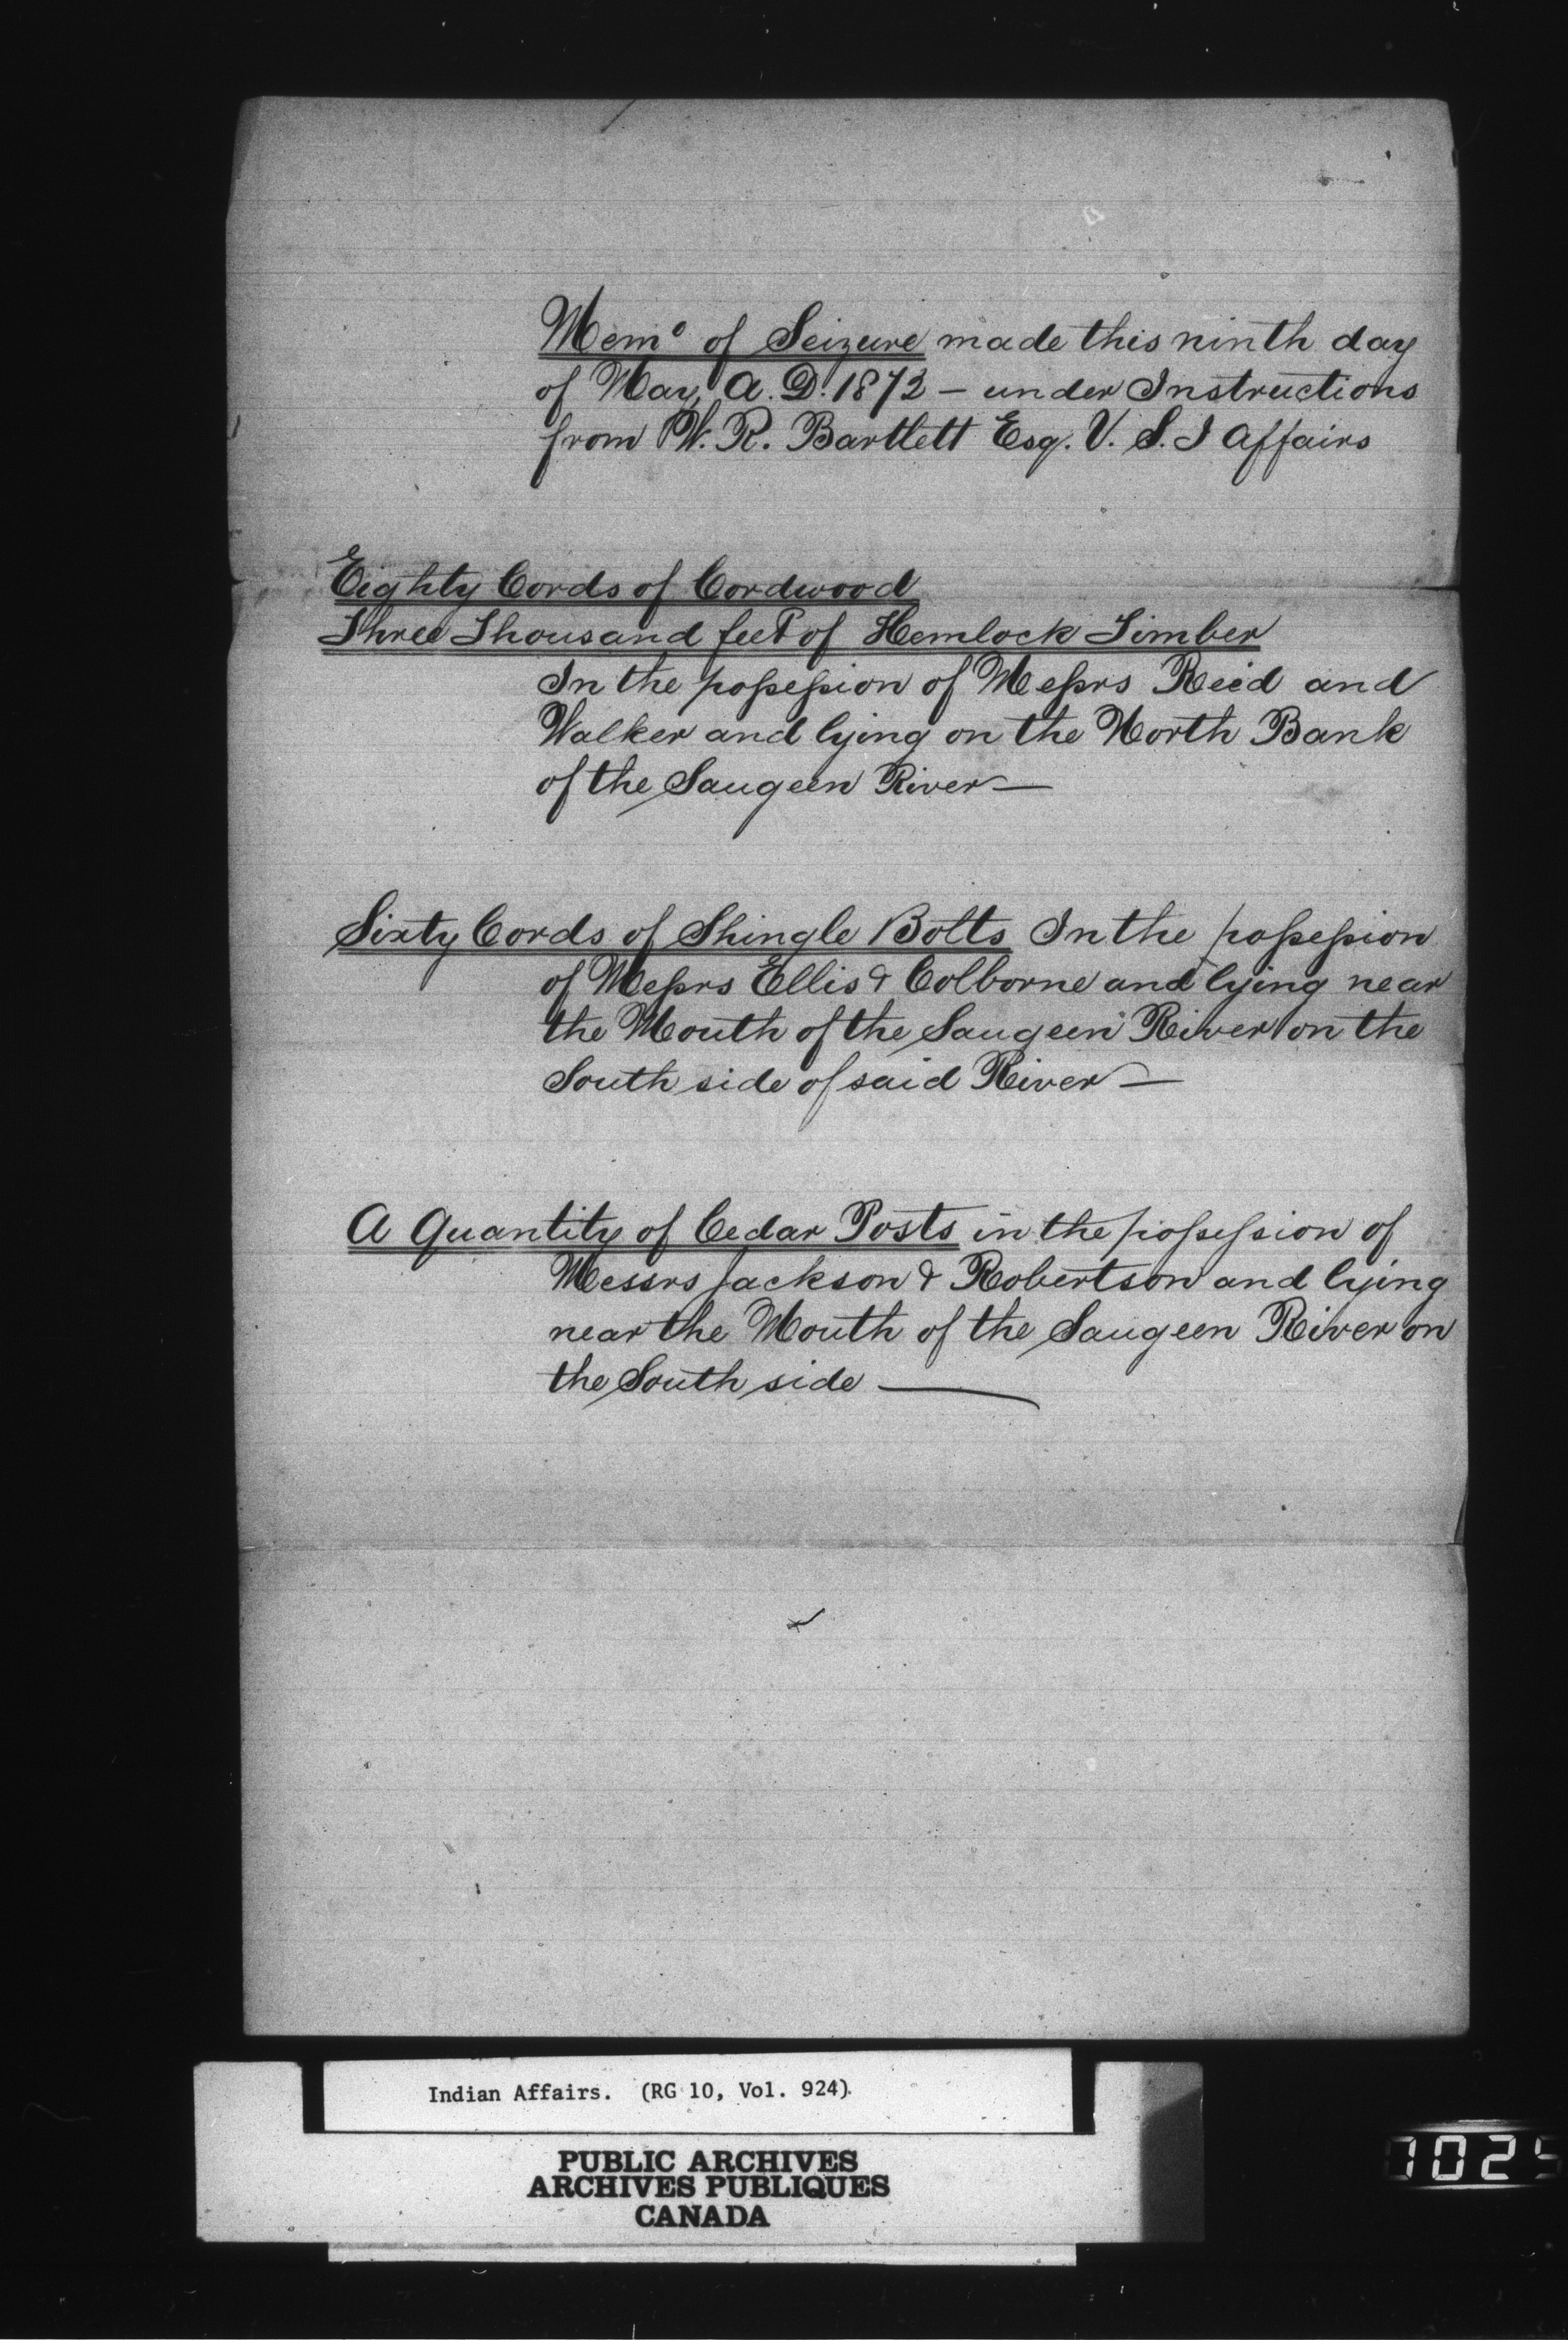 Memo of Seizure made this ninth day
of May, A. D. 1872 – under Instructions
from W. R. Bartlett Esq. V. S. I Affairs
Eighty Cords of Cordwood
Three Thousand feet of Hemlock Timber
In the possession of Messrs Reid and
Walker and lying on the North Bank
of the Saugeen River —
Sixty Cords of Shingle Bolts In the possession
of Messrs Ellis & Colborne and lying near
the Mouth of the Saugeen River on the
South side of said River —
A Quantity of Cedar Posts in the possession of
Messrs Jackson & Robertson and lying
near the Mouth of the Saugeen River on
the South side —
Indian Affairs. (RG 10, Vol. 924)
PUBLIC ARCHIVES
ARCHIVES PUBLIQUES
CANADA